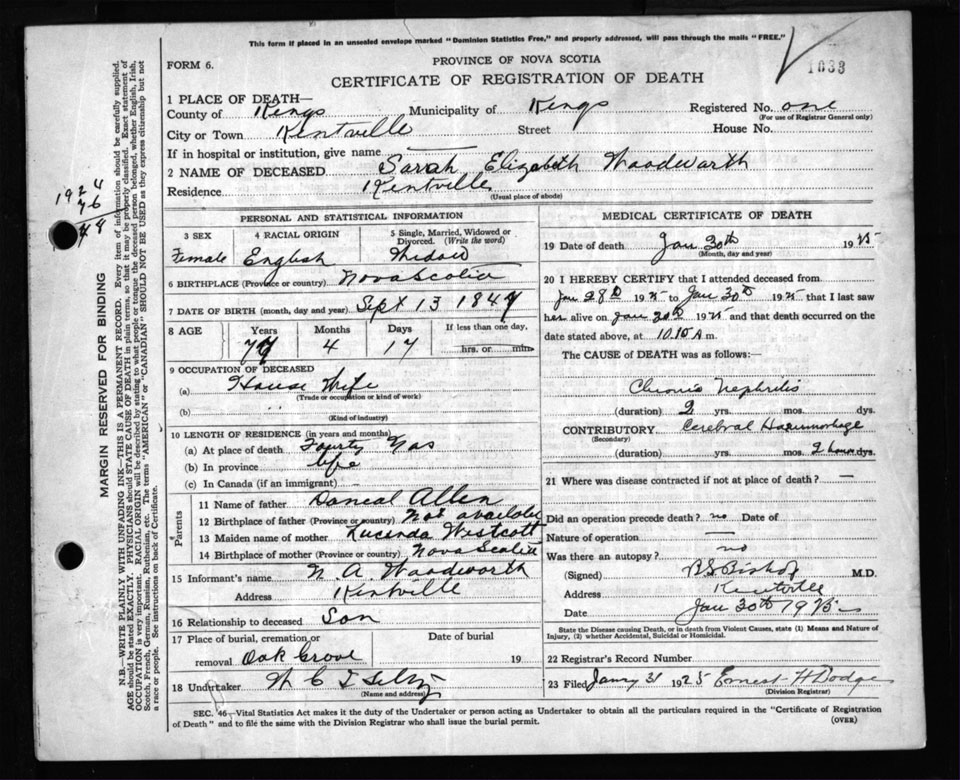 This form if placed in an unsealed envelope marked "Dominion Statistics Free," and properly addressed, will pass through the mails "FREE."
FORM 6.
PROVINCE OF NOVA SCOTIA
CERTIFICATE OF REGISTRATION OF DEATH
1033
1 PLACE OF DEATH—
County of Kings Municipality of Kings Registered No. one
(For use of Registrar General only)
City or Town Kentville Street House No.
If in hospital or institution, give name
2 NAME OF DECEASED Sarah Elizabeth Woodworth
Residence Kentville
(Usual place of abode)
PERSONAL AND STATISTICAL INFORMATION
3 SEX 4 RACIAL ORIGIN 5 Single, Married, Widowed or Divorced. (Write the word)
Female English Widow
6 BIRTHPLACE (Province or country) Nova Scotia
7 DATE OF BIRTH (month, day and year) Sept 13 1847
8 AGE Years Months Days If less than one day,
77 4 17 hrs. or min.
9 OCCUPATION OF DECEASED
(a) House Wife
(Trade or occupation or kind of work)
(b)
(Kind of industry)
10 LENGTH OF RESIDENCE (in years and months)
(a) At place of death
(b) In province life
(c) In Canada (if an immigrant)
Parents
11 Name of father Daneal Allen
12 Birthplace of father (Province or country) Not available
13 Maiden name of mother Lucenda Westcott
14 Birthplace of mother (Province or country) Nova Scotia
15 Informant's name N. A. Woodworth
Address Kentville
16 Relationship to deceased Son
17 Place of burial, cremation or Date of burial
removal Oak Grove 19
18 Undertaker
(Name and address)
MEDICAL CERTIFICATE OF DEATH
19 Date of death Jan 30th 1925
(Month, day and year)
20 I HEREBY CERTIFY that I attended deceased from
Jan 28th 1925 to Jan 30th 1925 that I last saw
her alive on Jan 30th 1925 and that death occurred on the
date stated above, at 10.15 A m.
The CAUSE of DEATH was as follows:
Chronic Nephritis
(duration) 2 yrs. mos. dys.
CONTRIBUTORY Cerebral Haemorrhage
(Secondary)
(duration) yrs. mos. 2 hours dys.
21 Where was disease contracted if not at place of death? —
Did an operation precede death? no Date of
Nature of operation —
Was there an autopsy? no
(Signed) B S Bishop M.D.
Address Kentville
Date Jan 30th 1925
State the Disease causing Death, or in death from Violent Causes, state (1) Means and Nature of
Injury, (2) whether Accidental, Suicidal or Homicidal.
22 Registrar's Record Number
23 Filed Janry 31 1925 Ernest H Dodge
(Division Registrar)
SEC. 46—Vital Statistics Act makes it the duty of the Undertaker or person acting as Undertaker to obtain all the particulars required in the "Certificate of Registration
of Death" and to file the same with the Division Registrar who shall issue the burial permit.
(OVER)
MARGIN RESERVED FOR BINDING
N.B.—WRITE PLAINLY WITH UNFADING INK—THIS IS A PERMANENT RECORD. Every item of information should be carefully supplied.
AGE should be stated EXACTLY. PHYSICIANS should STATE CAUSE OF DEATH in plain terms, so that it may be properly classified. Exact statement of
OCCUPATION is very important. RACIAL ORIGIN will be described by stating to what people or tongue the deceased person belonged, whether English, Irish,
Scotch, French, German, Russian, Ruthenian, etc. The terms "AMERICAN" or "CANADIAN" SHOULD NOT BE USED as they express citizenship but not
a race or people. See instructions on back of Certificate.
1924
76
48